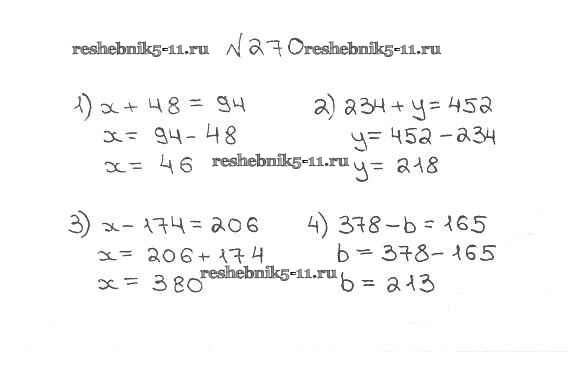 reshebnik5-11.ru №270 reshebnik5-11.ru
1) x + 48 = 94
x = 94 - 48
x = 46
2) 234 + y = 452
y = 452 - 234
y = 218
reshebnik5-11.ru
3) x - 174 = 206
x = 206 + 174
x = 380
4) 378 - b = 165
b = 378 - 165
b = 213
reshebnik5-11.ru